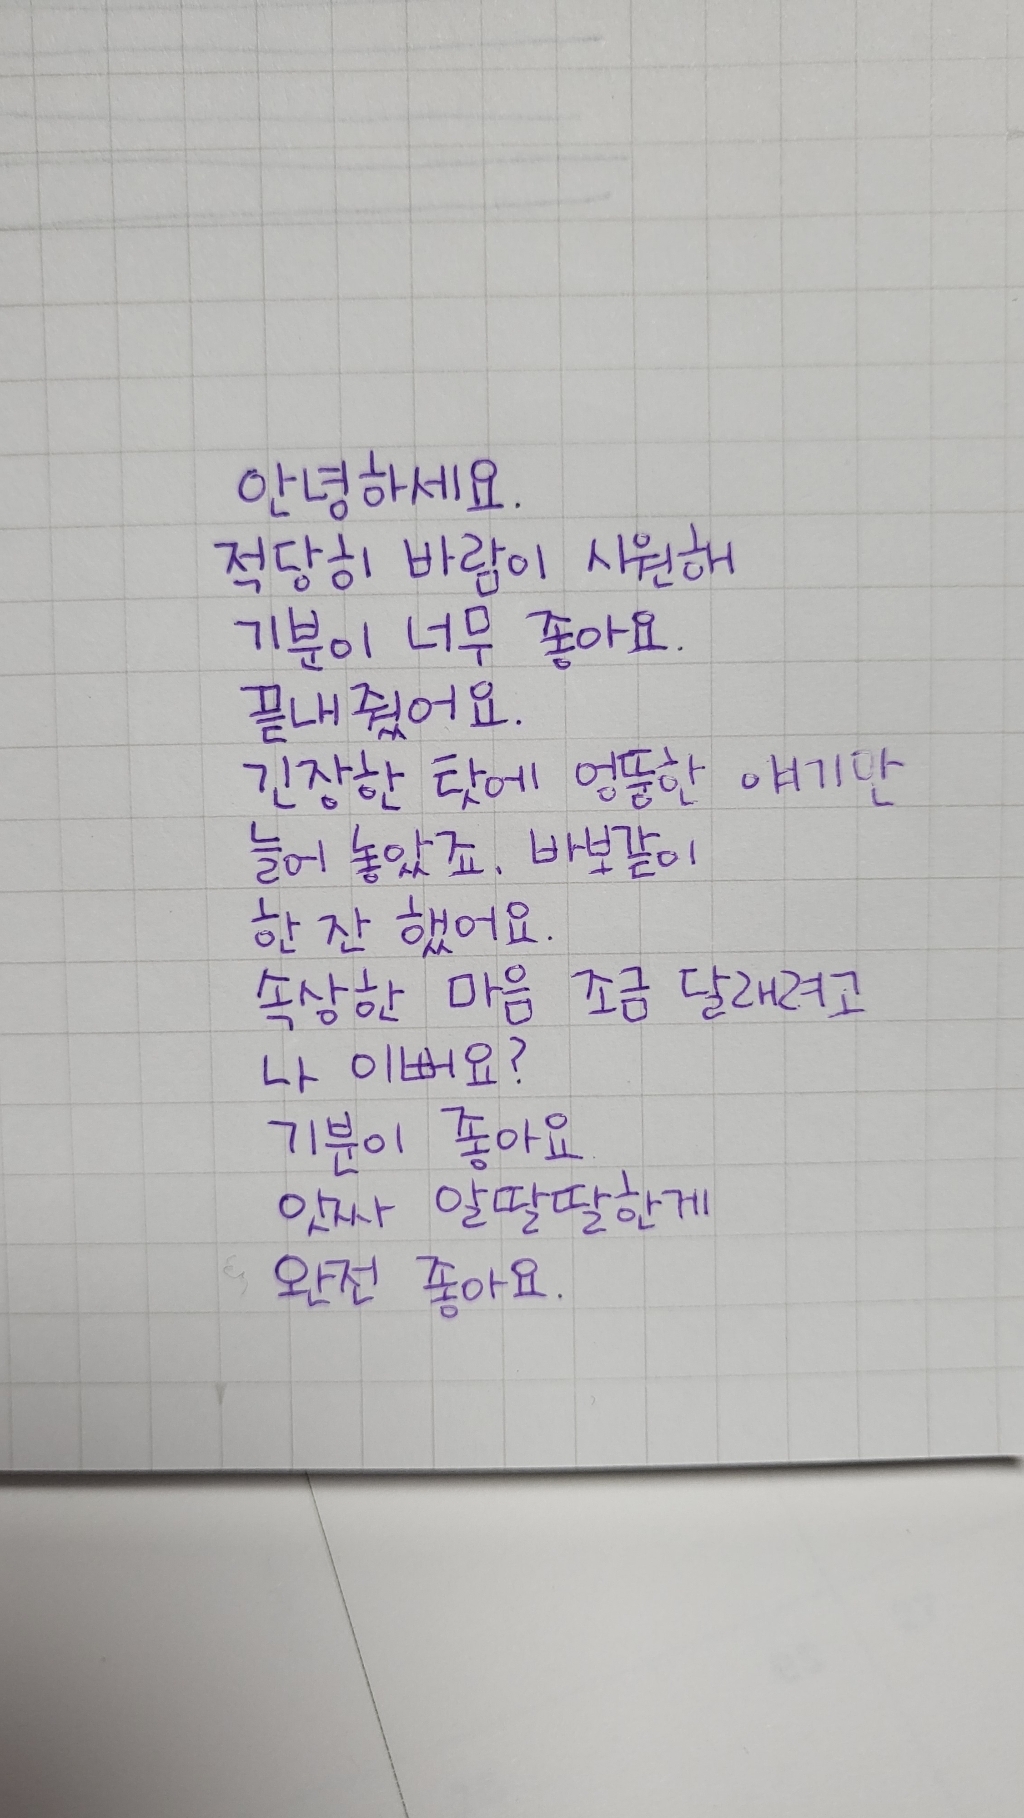 안녕하세요.
적당히 바람이 시원해
기분이 너무 좋아요.
끝내줬어요.
긴장한 탓에 엉뚱한 얘기만
늘어 놓았죠. 바보같이
한 잔 했어요.
속상한 마음 조금 달래려고
나 이뻐요?
기분이 좋아요
앗싸 알딸딸한게
완전 좋아요.